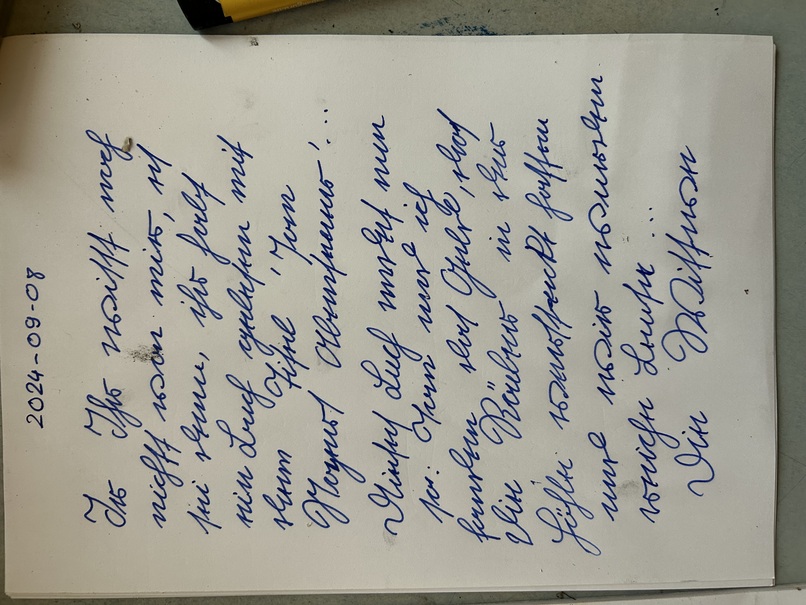 2024-09-08
Ihr wisst noch
nichts von mir, es
sei denn, ihr habt
ein Buch gelesen mit
dem Titel 'Tom
Sawyers Abenteuer'...
Dieses Buch endet nun
so: Tom und ich
fanden das Geld, das
die Räuber in der
Höhle versteckt hatten
und wir wurden
reiche Leute ...
Die Wittwe